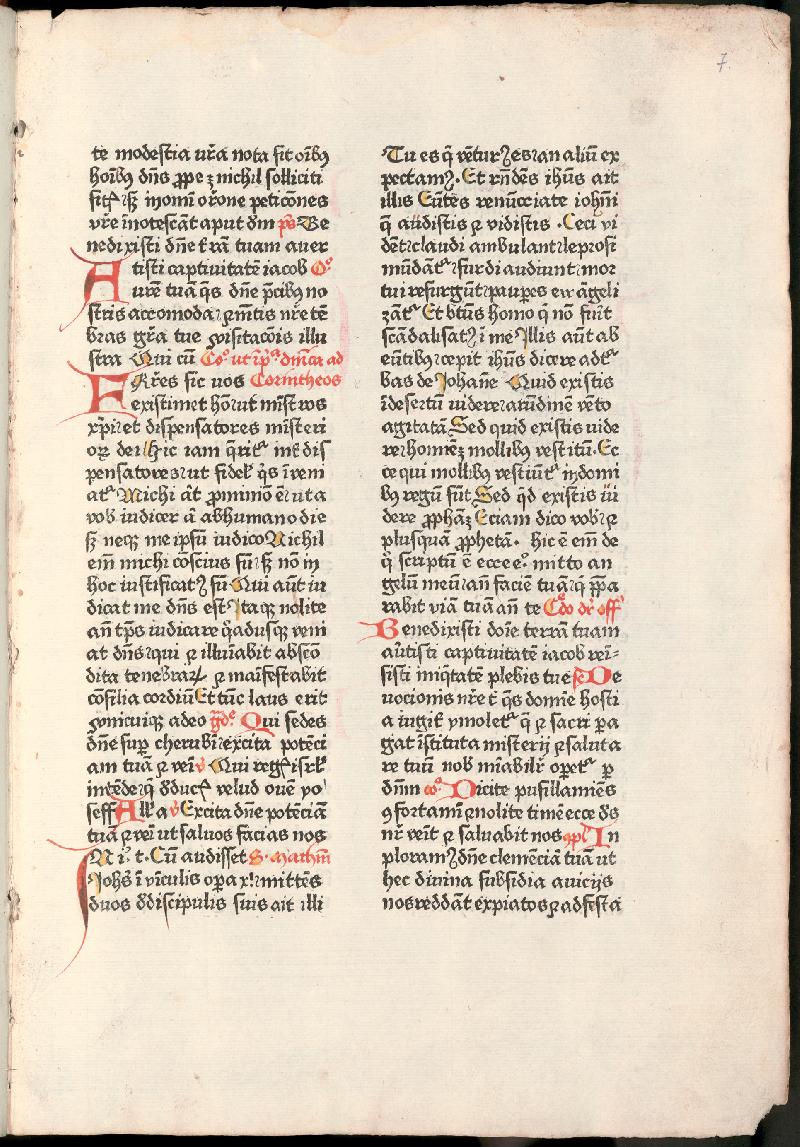 7
te modestia vr̄a nota sit oībꝯ
hoībꝯ dn̄s ꝓpe ⁊ nichil solliciti
sitꝭ sꝫ in om̄i or̄one peticōnes
vr̄e inotescāt aput dm̄ pꝰs Be
nedixisti dn̄e t̄rā tuam auer
tisti captiuitatē iacob Oᵒ
Aurē tuā q̄s dn̄e p̄cibꝯ no
stris accomoda ⁊ mētis nr̄e tē
bras gr̄a tue ꝩisitacōis illu
stra Qui cū Coᵒ ut ip̄ᵃ dīnica ad
FRr̄es sic uos Corintheos
existimet hō ut mīstros
xp̄i et dispensatores misteri
oꝝ dei hic iam q̄ritᷣ int̄ dis
pensatores ut fidel q̄s īueni
atᷣ Michi āt ꝓ minio ē ut a
vob iudicer ā ab humano die
sꝫ neqꝫ me ip̄sū iudico Nichil
em̄ michi cōscius sū sꝫ nō in
hoc iustificatꝯ sū Qui aūt iu
dicat me dn̄s est Itaqꝫ nolite
an̄ tp̄s iudicare q̄adusqꝫ veni
at dn̄s qui ⁊ illuīabit absco
dita tenebraꝝ ⁊ maīfestabit
cōsilia cordiū Et tūc laus erit
ꝩnicuiqꝫ a deo gᵒdᵉ Qui sedes
dn̄e suꝑ cherubī excita potēci
am tuā ⁊ veī v̄ Qui regꝭ isrl̄
intēde q̄ dducꝭ velud ouē yo
seff All̄a v̄ Excita dn̄e potēciā
tuā ⁊ veī ut saluos facias nos
IN i. t. Cū audisset S. Matheū
Johs̄ ī vīculis oꝑa xi mittēs
duos d discipulis suis ait illi
Tu es q̄ vēturꝯ es an aliū ex
pectamꝯ. Et rn̄dēs ihūs ait
illis Eūtes renūcciate iohīni
q̄ audistis ⁊ vidistis. Ceci vi
dēt claudi ambulant leprosi
mūdātᷣ surdi audiunt mor
tui resurgūt pauꝑes ewāgeli
zātᷣ Et btūs homo q̄ nō fuīt
scādalisatꝯ ī me Illis aūt ab
eūtibꝯ cepit ihūs dicere ad tᷣ
bas de Johāne Quid existis
ī desertū uidere arūdinē vēto
agitatā Sed quid existis uide
re homiēꝫ mollibꝯ vestitū. Ec
ce qui mollibꝯ vestiūtᷣ in domi
bꝯ regū sūt Sed q̄d existis ui
dere ꝓphāꝫ Eciam dico vob ⁊
plusquā ꝓphetā. hic ē em̄ de
q̄ scriptū ē ecce eᵒ mitto an
gelū meū an̄ faciē tuā q̄ p̄pa
rabit viā tuā an̄ te Cdo dr̄ off
Benedixisti doīe terrā tuam
autisti captiuitatē iacob rei-
sisti iniq̄tatē plebis tue sᵉ De
uocionis nr̄e t̄ q̄s domīe hosti
a iugiꝭ ymoletᷣ q̄ ⁊ sacri ꝑa
gat īstituta misterij ⁊ saluta
re tuū nob mīabilr̄ oꝑetᷣ ꝑ
dn̄m coᵒ Dicite pusillanīes
ꝯfortamī ⁊ nolite timē ecce ds̄
nr̄ vēit ⁊ saluabit nos ꝯpl̄ In
ploramꝯ dn̄e clemēciā tuā ut
hec diuina subsidia a uicijs
nos reddāt expiatos ⁊ ad festa